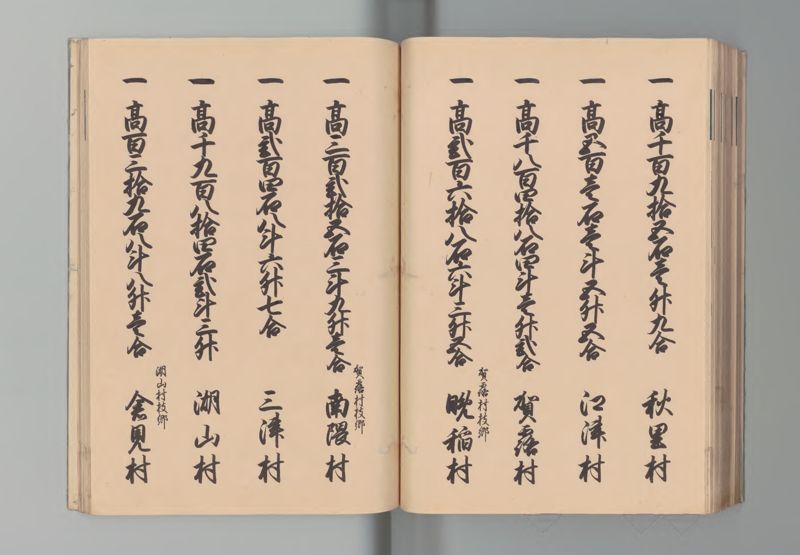 一高千百九拾五石壱升九合 秋里村
一高五百壱石壱斗五升五合 江津村
一高千八百四拾八石四斗壱升弐合 賀露村
賀露村枝郷
一高弐百六拾八石六斗三升五合 晩稲村
賀露村枝郷
一高三百弐拾五石三斗九升壱合 南隈村
一高弐百四石八斗六升七合 三津村
一高千九百八拾四石弐斗三升 湖山村
湖山村枝郷
一高百三拾九石八斗八升壱合 倉見村